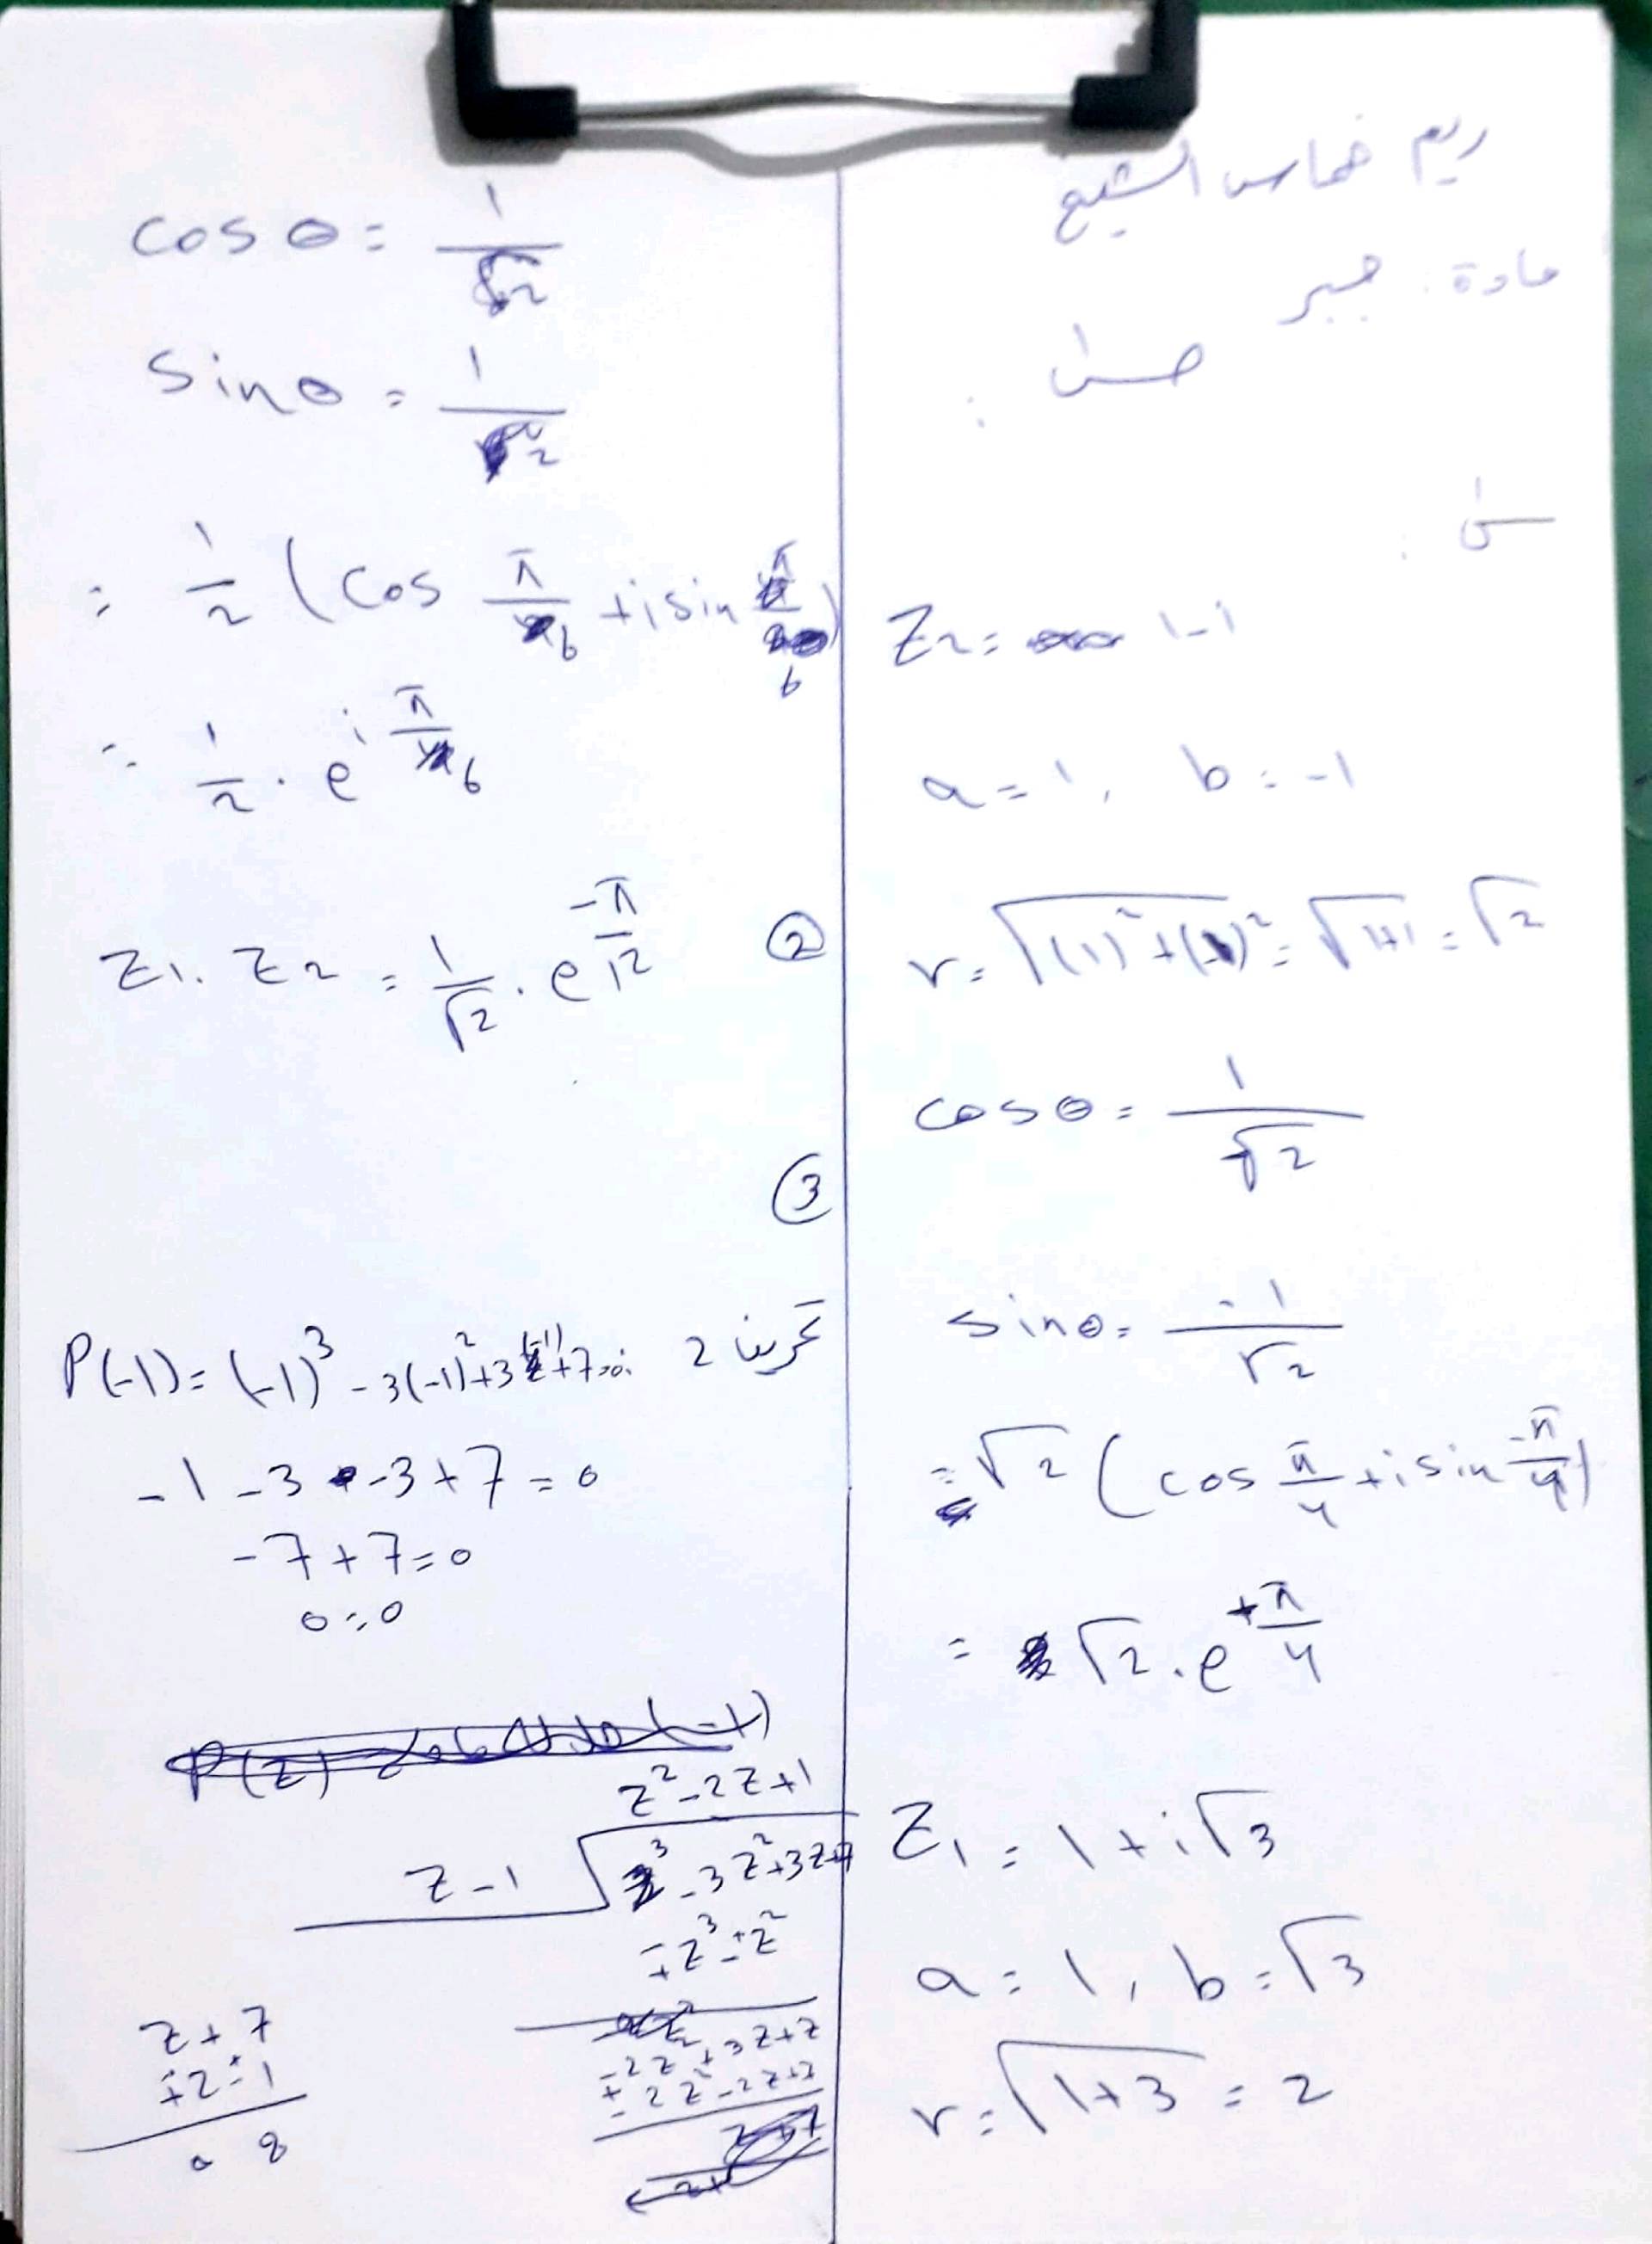 ريم خماس الشيخ
مادة: جبر
:
Z2 = 1-i
a = 1, b = -1
r = √(1)²+(1)² = √1+1 = √2
cos θ = 1/√2
sin θ = -1/√2
= √2 (cos π/4 + i sin -π/4)
= √2 . e^+π/4
Z1 = 1 + i√3
a = 1, b = √3
r = √1+3 = 2
cos θ = 1/√2
sin θ = 1/√2
= 1/2 (cos π/6 + i sin π/6)
= 1/2 . e^i π/6
②
Z1 . Z2 = 1/√2 . e^-π/12
③
تمرين 2
P(-1) = (-1)³ - 3(-1)² + 3(-1) + 7 = 0
-1 - 3 - 3 + 7 = 0
-7 + 7 = 0
0 = 0
z² - 2z + 1
z - 1 √z³ - 3z² + 3z + 7
∓z³ ± z²
-2z² + 3z + 7
z + 7
∓z ± 1
0 8